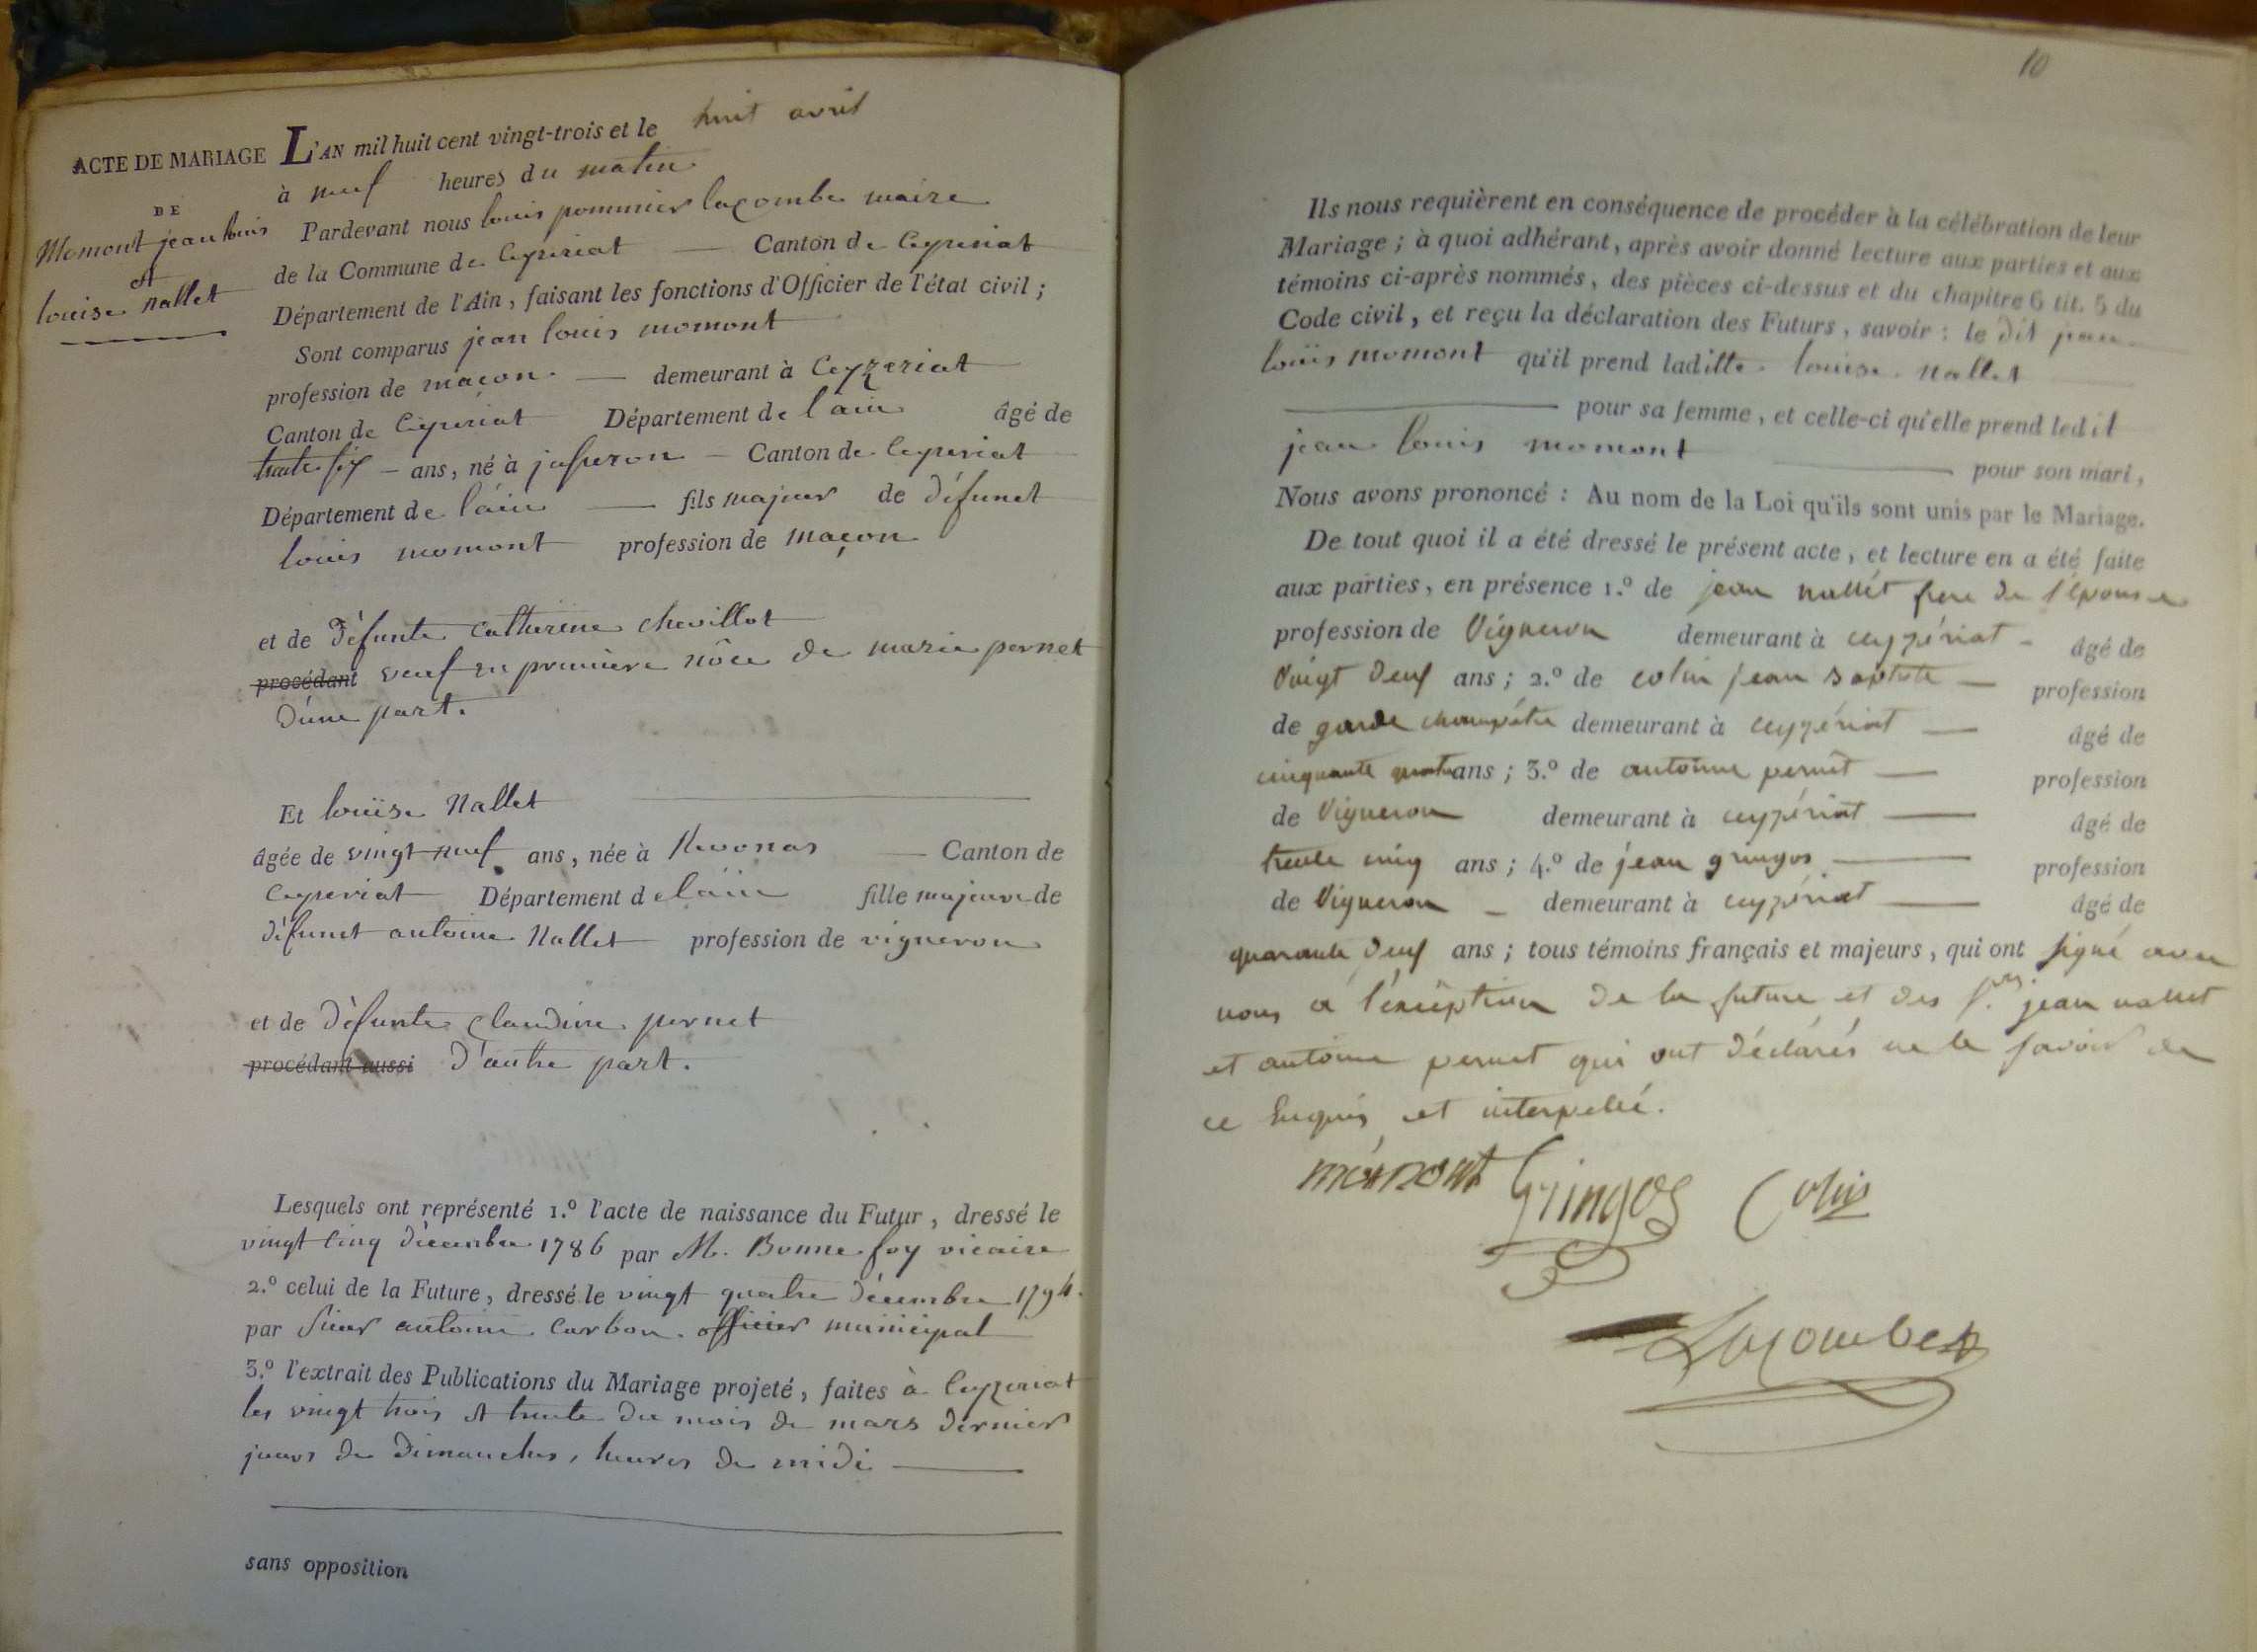 ACTE DE MARIAGE
DE
Momont jean louis
et
louise nallet
L'AN mil huit cent vingt-trois et le huit avril
à neuf heures du matin
Pardevant nous louis pommier lacombe maire
de la Commune de Ceyzeriat Canton de Ceyzeriat
Département de l'Ain, faisant les fonctions d'Officier de l'état civil ;
Sont comparus jean louis momont
profession de maçon. demeurant à Ceyzeriat
Canton de Ceyzeriat Département de l'ain âgé de
trente six ans, né à jasseron Canton de Ceyzeriat
Département de l'ain fils majeur de défunct
louis momont profession de maçon
et de défunte catherine chevillot
procédant veuf en première nôce de marie pernet
d'une part.
Et louïse Nallet
âgée de vingt neuf ans, née à Revonas Canton de
Ceyzeriat Département de l'ain fille majeure de
défunct antoine Nallet profession de vigneron
et de défunte claudine pernet
procédant aussi d'autre part.
Lesquels ont représenté 1.º l'acte de naissance du Futur, dressé le
vingt cinq décembre 1786 par M. Bonnefoy vicaire
2.º celui de la Future, dressé le vingt quatre décembre 1794.
par sieur antoine carbon. officier municipal
3.º l'extrait des Publications du Mariage projeté, faites à Ceyzeriat
les vingt trois et trente du mois de mars dernier
jours de dimanches, heures de midi
sans opposition
10
Ils nous requièrent en conséquence de procéder à la célébration de leur
Mariage ; à quoi adhérant, après avoir donné lecture aux parties et aux
témoins ci-après nommés, des pièces ci-dessus et du chapitre 6 tit. 5 du
Code civil, et reçu la déclaration des Futurs, savoir : le dit jean
louis momont qu'il prend laditte louise nallet
pour sa femme, et celle-ci qu'elle prend ledit
jean louis momont pour son mari,
Nous avons prononcé : Au nom de la Loi qu'ils sont unis par le Mariage.
De tout quoi il a été dressé le présent acte, et lecture en a été faite
aux parties, en présence 1.º de jean nallét frere de l'épouse
profession de Vigneron demeurant à ceyzériat âgé de
Vingt deux ans ; 2.º de colin jean Baptiste profession
de garde champétre demeurant à ceyzériat âgé de
cinquante quatre ans ; 3.º de antoine pernet profession
de Vigneron demeurant à ceyzériat âgé de
trente cinq ans ; 4.º de jean gringos profession
de Vigneron demeurant à ceyzériat âgé de
quarante deux ans ; tous témoins français et majeurs, qui ont signé avec
nous à l'exception de la future et des s.rs jean nallet
et antoine pernet qui ont déclarés ne le savoir de
ce Enquis et interpellé.
momont Gringos Colin
Lacombe